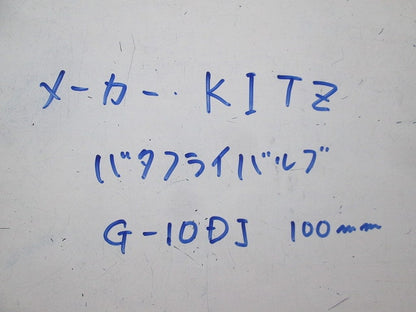 メーカー. KITZ
バタフライバルブ
G-10DJ 100mm